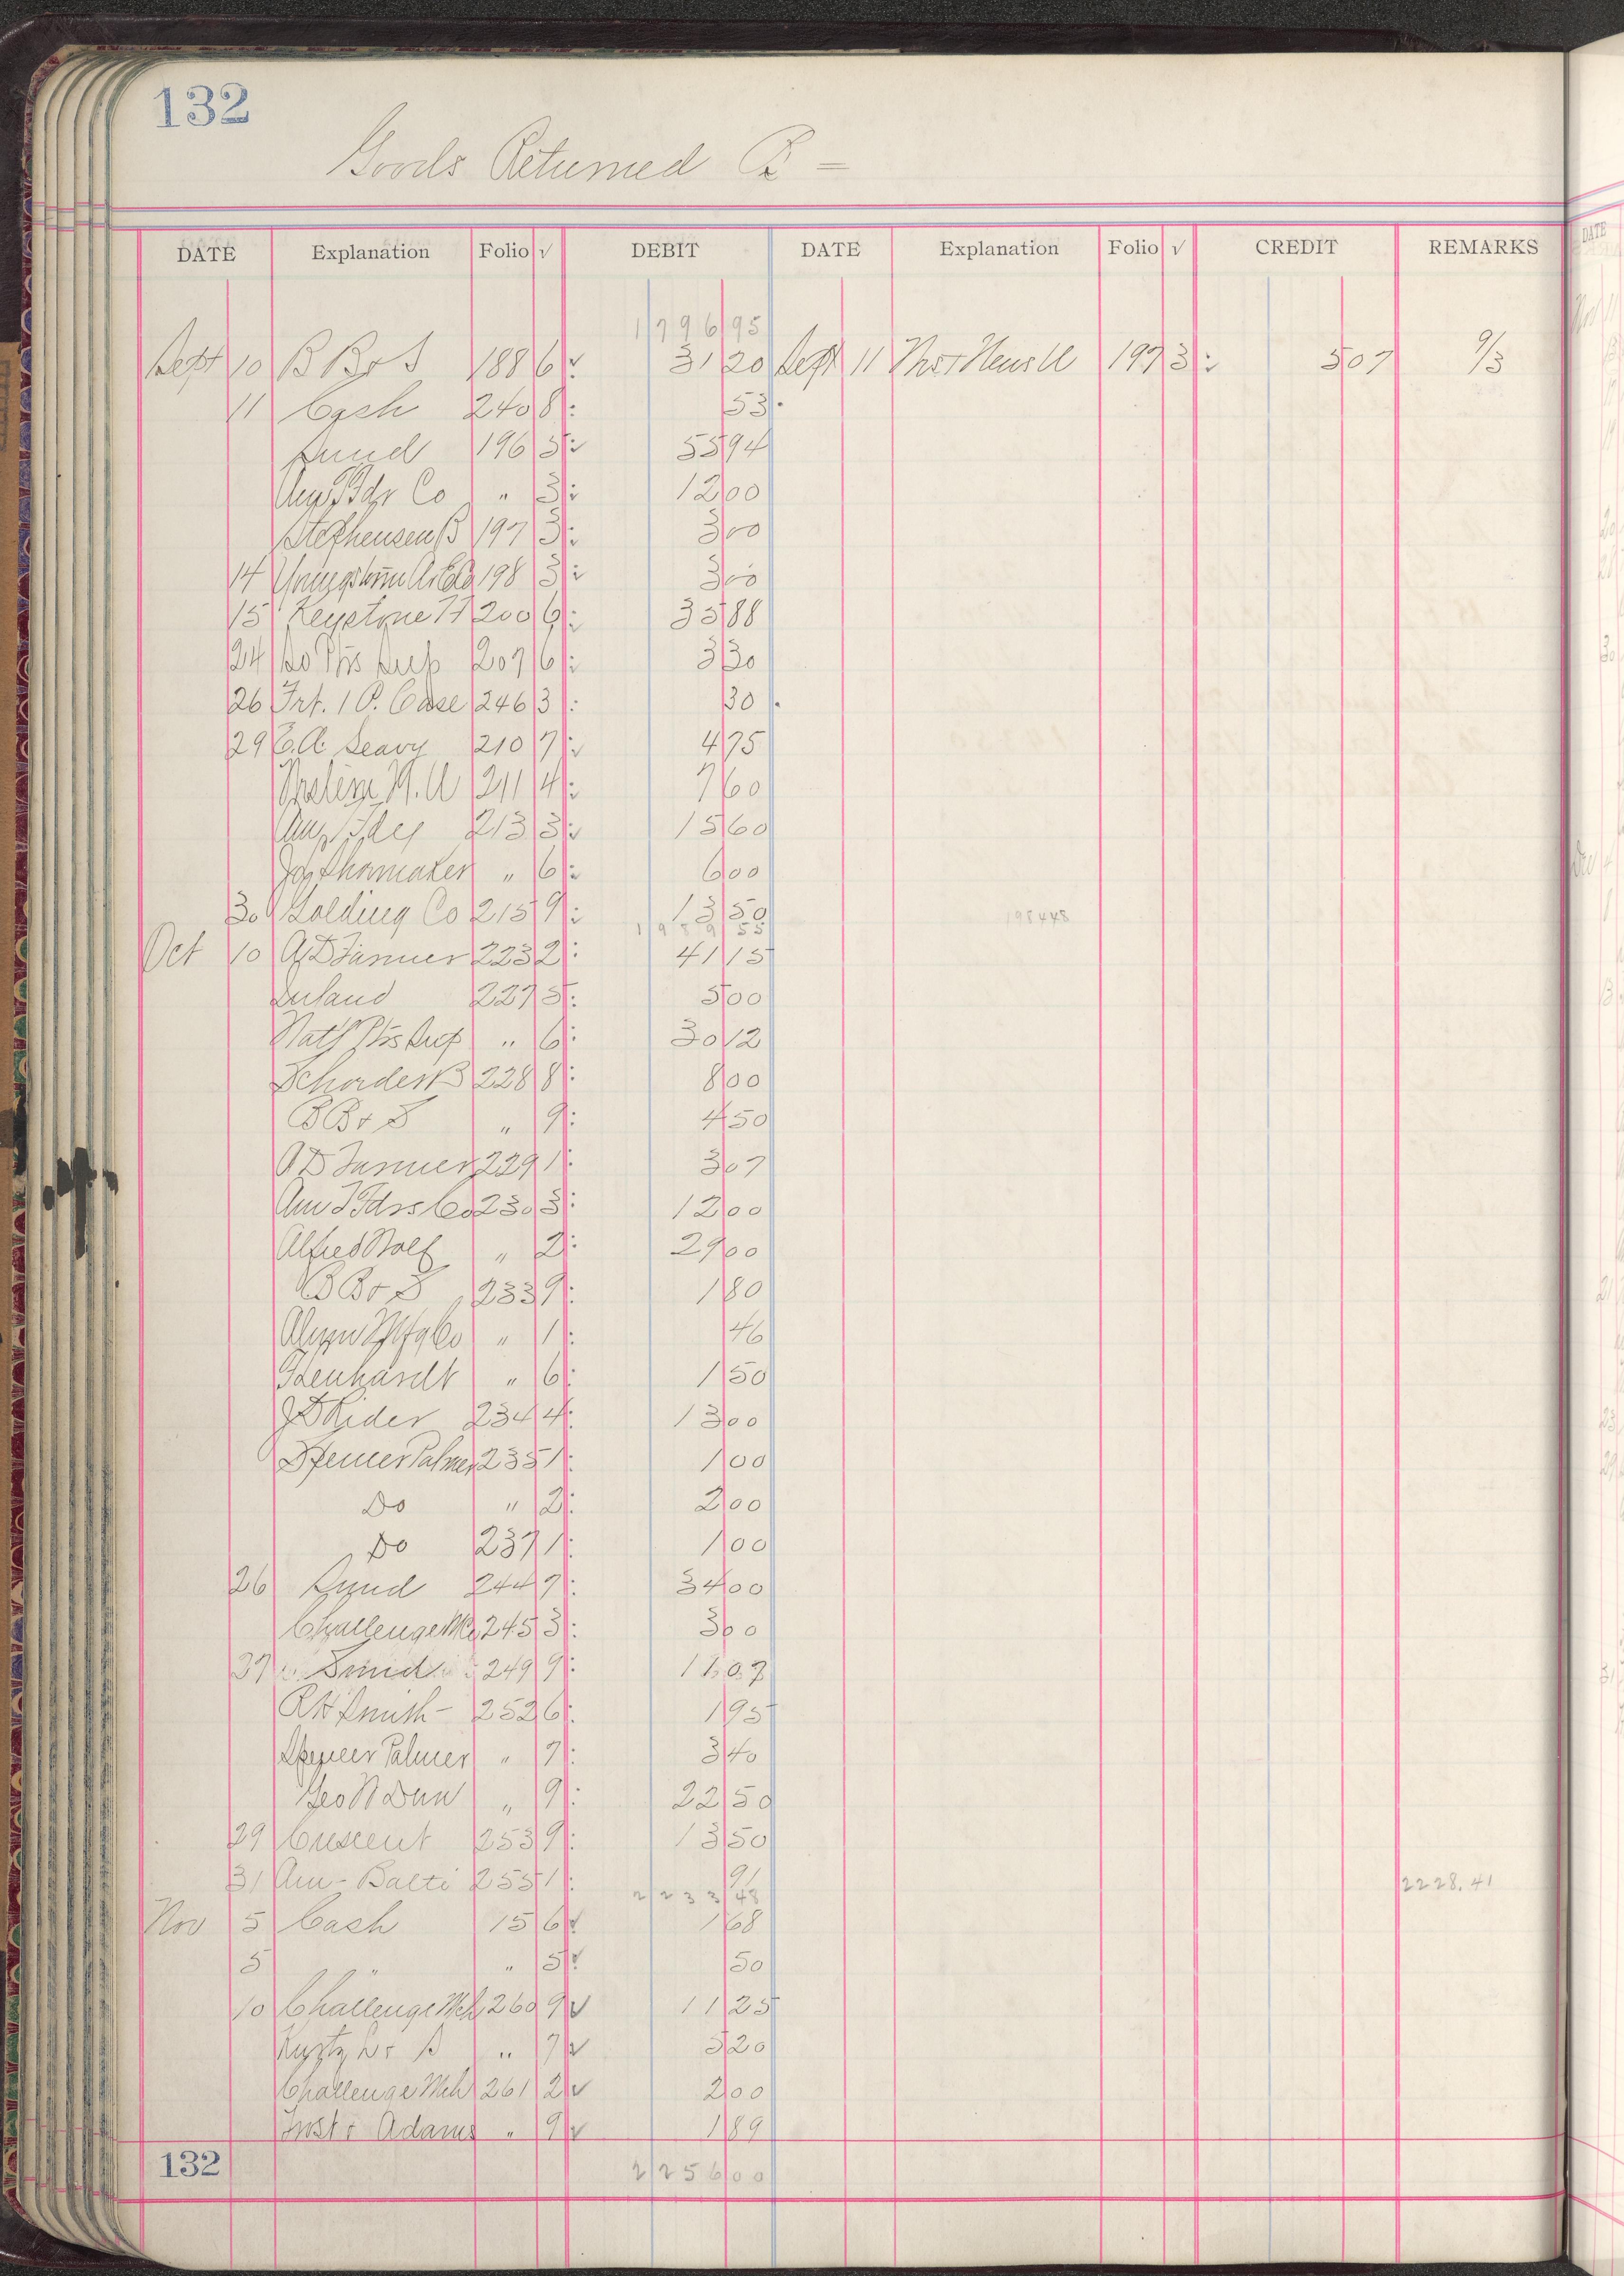 132
Goods Returned
DATE Explanation Folio √ DEBIT DATE Explanation Folio √ CREDIT REMARKS
1796 95
Sept 10 B B & S 188 6 31 20 Sept 11 197 3 5 07 9/3
11 Cash 240 8 53
Sund 196 5 55 94
Co " 3 12 00
Stephensen B 197 3 3 00
14 198 3 3 00
15 Keystone 200 6 35 88
24 So 207 6 3 30
26 Frt. 1 P. Case 246 3 30
29 E.A. Seavy 210 7 4 75
211 4 7 60
213 3 15 60
Jos Shoemaker " 6 6 00
30 Golding Co 215 9 13 50
1989 55 1984 48
Oct 10 A D Farmer 223 2 41 15
Inland 227 5 5 00
Nat'l Ptrs Sup " 6 30 12
228 8 8 00
B B & S " 9 4 50
A D Farmer 229 1 3 07
Am T Fdrs Co 230 3 12 00
Alfred " 2 29 00
B B & S 233 9 1 80
Mfg Co " 1 46
" 6 1 50
J D Rider 234 4 13 00
Spencer Palmer 235 1 1 00
Do " 2 2 00
Do 237 1 1 00
26 Sund 244 7 34 00
Challenge 245 3 3 00
27 Sund 249 9 11 07
R H Smith 252 6 1 95
Spencer Palmer " 7 3 40
Geo W Dunn " 9 22 50
29 Crescent 253 9 13 50
31 Am - Balti 255 1 91 2228.41
2233 48
Nov 5 Cash 15 6 √ 1 68
5 " " 5 √ 50
10 Challenge Mch 260 9 √ 11 25
" 7 √ 5 20
Challenge Mch 261 2 √ 2 00
& Adams " 9 √ 1 89
132 2256 00